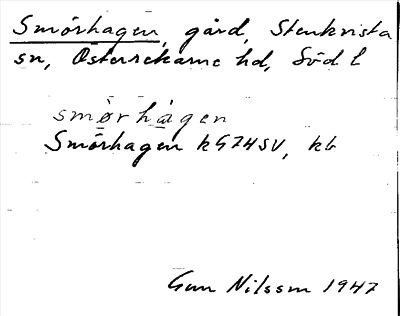 Smörhagen, gård, Stenkvista
sn, Österrekarne hd, Söd l
smörhagen
Smörhagen kG74SV, kb
Gun Nilsson 1947